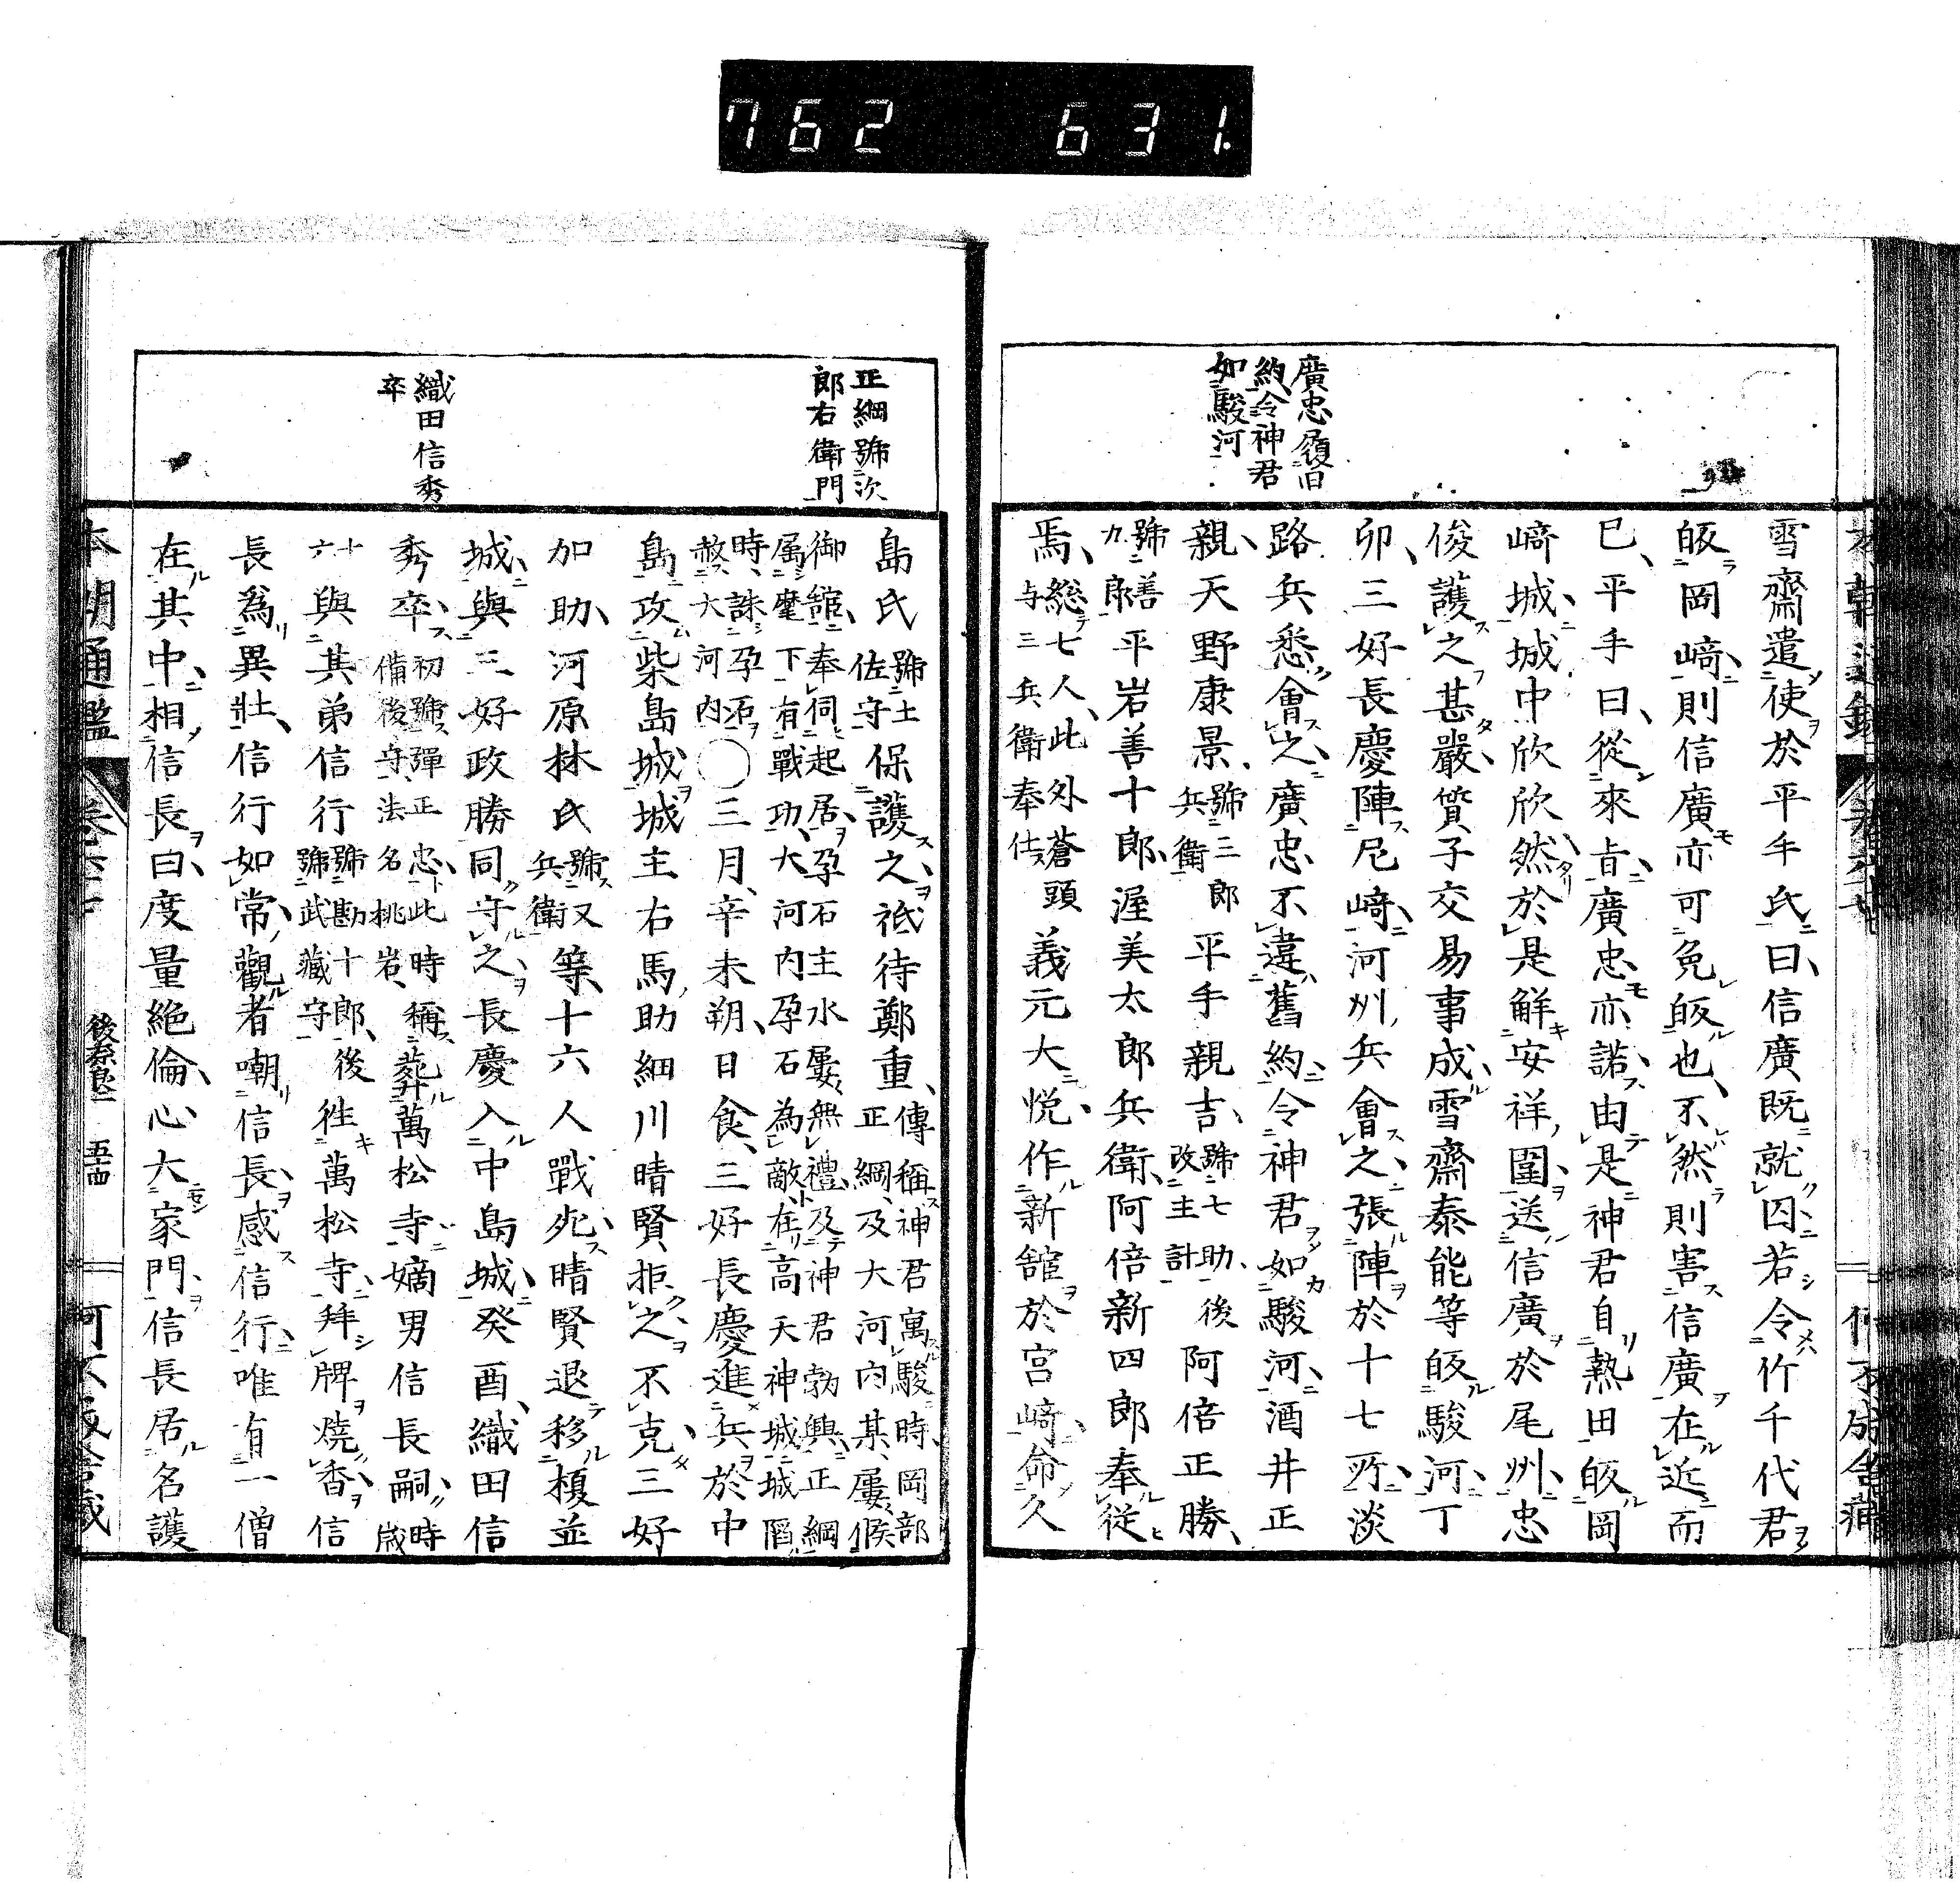 762 631.
廣忠履舊
約令神君
如駿河
雪齋遣使於平手氏曰信廣既就囚若令竹千代君
皈岡﨑則信廣亦可免皈也不然則害信廣在近而
已平手曰從來旨廣忠亦諾由是神君自熱田皈岡
﨑城城中欣欣然於是解安祥圍送信廣於尾州忠
俊護之甚嚴質子交易事成雪齋泰能等皈駿河丁
卯三好長慶陣尼﨑河州兵會之張陣於十七所淡
路兵悉會之廣忠不違舊約令神君如駿河酒井正
親天野康景號三郎兵衛平手親吉號七助後改主計阿倍正勝
號善九郎平岩善十郎渥美太郎兵衛阿倍新四郎奉從
焉總七人此外蒼頭与三兵衛奉仕義元大悅作新館於宮﨑命久
正綱號次
郎右衛門
織田信秀
卒
島氏號土佐守保護之祗待鄭重傳稱神君寓駿時岡部正綱及大河内某屢候
御館奉伺起居孕石主水屢無禮及神君勃興正綱属麾下有戰功大河内孕石為敵在高天神城城陷
時誅孕石赦大河内○三月辛未朔日食三好長慶進兵於中
島攻柴島城城主右馬助細川晴賢拒之不克三好
加助河原林氏號又兵衛等十六人戰死晴賢退移榎並
城與三好政勝同守之長慶入中島城癸酉織田信
秀卒初號彈正忠此時稱備後守法名桃岩葬萬松寺嫡男信長嗣時歲
十六與其弟信行號勘十郎後號武藏守往萬松寺拜牌燒香信
長爲異壯信行如常觀者嘲信長感信行唯有一僧
在其中相信長曰度量絕倫心大家門信長居名護
本朝通鑑 後奈良 五十四